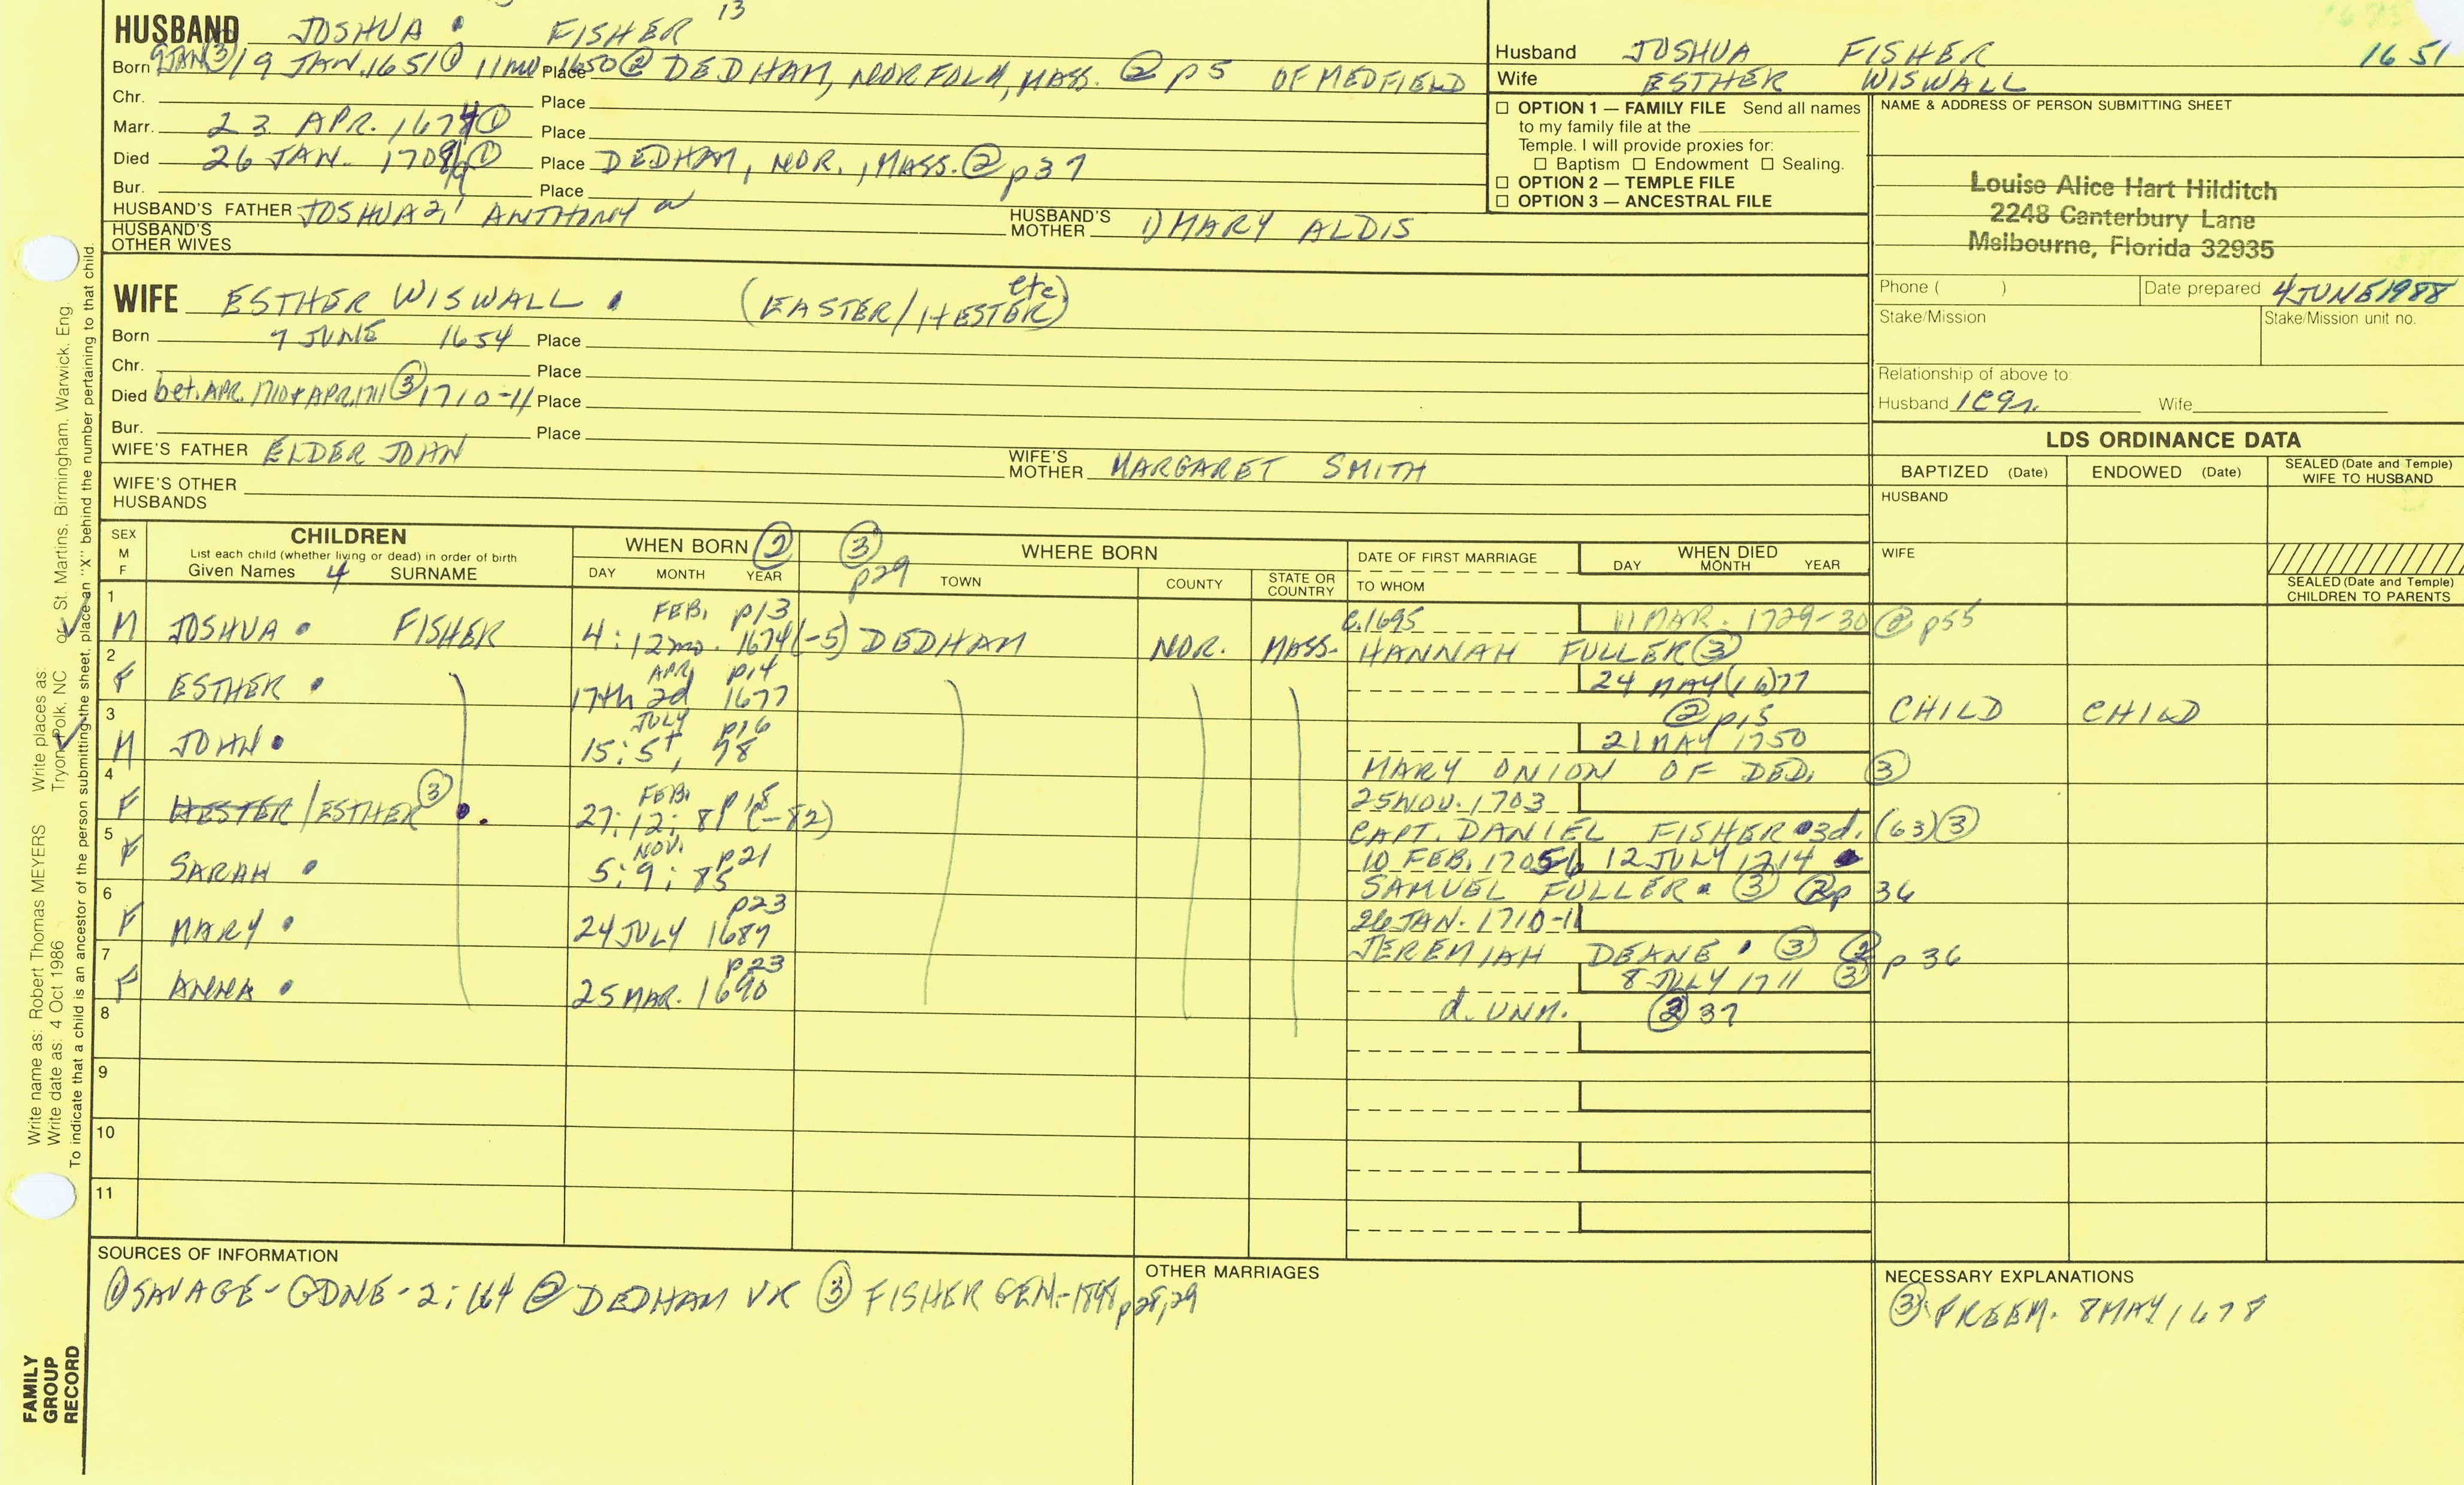 HUSBAND JOSHUA • FISHER 13
Born 9 JAN ③ 19 JAN. 1651 ① 11mo 1650 ② Place DEDHAM, NORFOLK, MASS. ② p5 OF MEDFIELD
Chr. Place
Marr. 23 APR. 1674 ① Place
Died 26 JAN. 1708/9 ① Place DEDHAM, NOR., MASS. ② p37
Bur. Place
HUSBAND'S FATHER JOSHUA 2, 1 ANTHONY
HUSBAND'S MOTHER 1) MARY ALDIS
HUSBAND'S OTHER WIVES
WIFE ESTHER WISWALL • (EASTER/HESTER etc)
Born 7 JUNE 1654 Place
Chr. Place
Died bet. APR. 1710 & APR. 1711 ③ 1710-11 Place
Bur. Place
WIFE'S FATHER ELDER JOHN
WIFE'S MOTHER MARGARET SMITH
WIFE'S OTHER HUSBANDS
Husband JOSHUA FISHER 1651
Wife ESTHER WISWALL
☐ OPTION 1 — FAMILY FILE Send all names
to my family file at the
Temple. I will provide proxies for:
☐ Baptism ☐ Endowment ☐ Sealing.
☐ OPTION 2 — TEMPLE FILE
☐ OPTION 3 — ANCESTRAL FILE
NAME & ADDRESS OF PERSON SUBMITTING SHEET
Louise Alice Hart Hilditch
2248 Canterbury Lane
Melbourne, Florida 32935
Phone ( ) Date prepared 4 JUNE 1988
Stake/Mission Stake/Mission unit no.
Relationship of above to:
Husband Wife
LDS ORDINANCE DATA
BAPTIZED (Date) ENDOWED (Date) SEALED (Date and Temple) WIFE TO HUSBAND
HUSBAND
WIFE
SEALED (Date and Temple) CHILDREN TO PARENTS
SEX M F
CHILDREN
List each child (whether living or dead) in order of birth
Given Names 4 SURNAME
WHEN BORN ②
DAY MONTH YEAR
③ p29 WHERE BORN
TOWN COUNTY STATE OR COUNTRY
DATE OF FIRST MARRIAGE
TO WHOM
WHEN DIED
DAY MONTH YEAR
1 M JOSHUA • FISHER FEB. p13 4:12mo. 1674(-5) DEDHAM NOR. MASS. c.1695 11 MAR. 1729-30 ② p55
HANNAH FULLER ③
2 F ESTHER • APR. p14 17th 2d 1677 24 MAY (16)77
② p15 CHILD CHILD
3 M JOHN • JULY p16 15:5, 78 21 MAY 1750
MARY ONION OF DED. ③
4 F HESTER/ESTHER ③ • FEB. p18 27:12:81(-82) 25 NOV. 1703
CAPT. DANIEL FISHER • 3d. (63) ③
5 F SARAH • NOV. p21 5:9:85 10 FEB. 1705-6 12 JULY 1714
SAMUEL FULLER • ③ ② p 36
6 F MARY • p23 24 JULY 1687 26 JAN. 1710-11
JEREMIAH DEANE • ③ ② p 36
7 F ANNA • p23 25 MAR. 1690 8 JULY 1711 ③
d. UNM. ② 37
8
9
10
11
SOURCES OF INFORMATION
① SAVAGE-GDNE-2:164 ② DEDHAM VR ③ FISHER GEN.-1898 p28,29
OTHER MARRIAGES
NECESSARY EXPLANATIONS
③ FREEM. 8 MAY 1678
Write name as: Robert Thomas MEYERS Write places as: Tryon, Polk, NC or St. Martins, Birmingham, Warwick, Eng.
Write date as: 4 Oct 1986
To indicate that a child is an ancestor of the person submitting the sheet, place an "X" behind the number pertaining to that child.
FAMILY
GROUP
RECORD